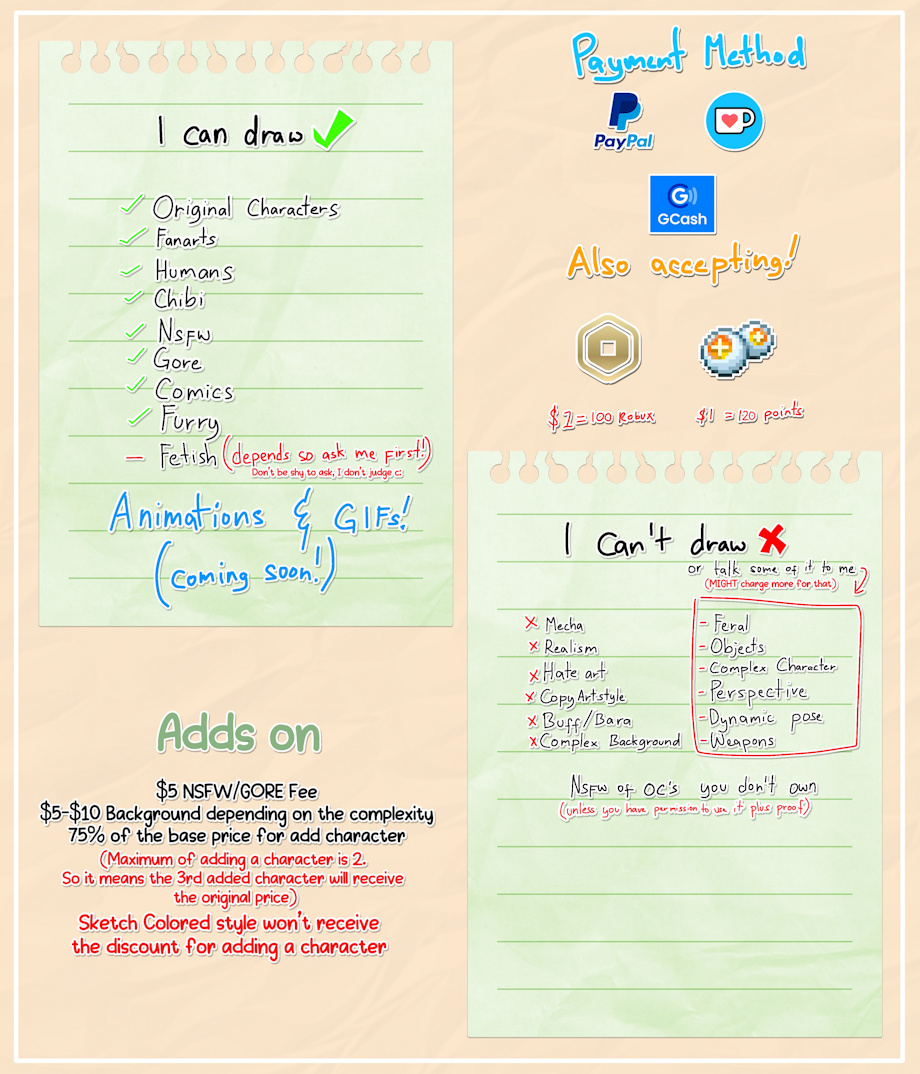 I can draw
Original Characters
Fanarts
Humans
Chibi
Nsfw
Gore
Comics
Furry
Fetish (depends so ask me first!)
Don't be shy to ask, I don't judge c:
Animations & GIFs!
(coming soon!)
Payment Method
PayPal
GCash
Also accepting!
$1=100 Robux
$1 =120 points
I Can't draw
or talk some of it to me
(MIGHT charge more for that)
Mecha
Realism
Hate art
Copy Artstyle
Buff/Bara
Complex Background
- Feral
- Objects
- Complex Character
- Perspective
- Dynamic pose
- Weapons
Nsfw of OC's you don't own
(unless you have permission to use it plus proof)
Adds on
$5 NSFW/GORE Fee
$5-$10 Background depending on the complexity
75% of the base price for add character
(Maximum of adding a character is 2.
So it means the 3rd added character will receive
the original price)
Sketch Colored style won't receive
the discount for adding a character